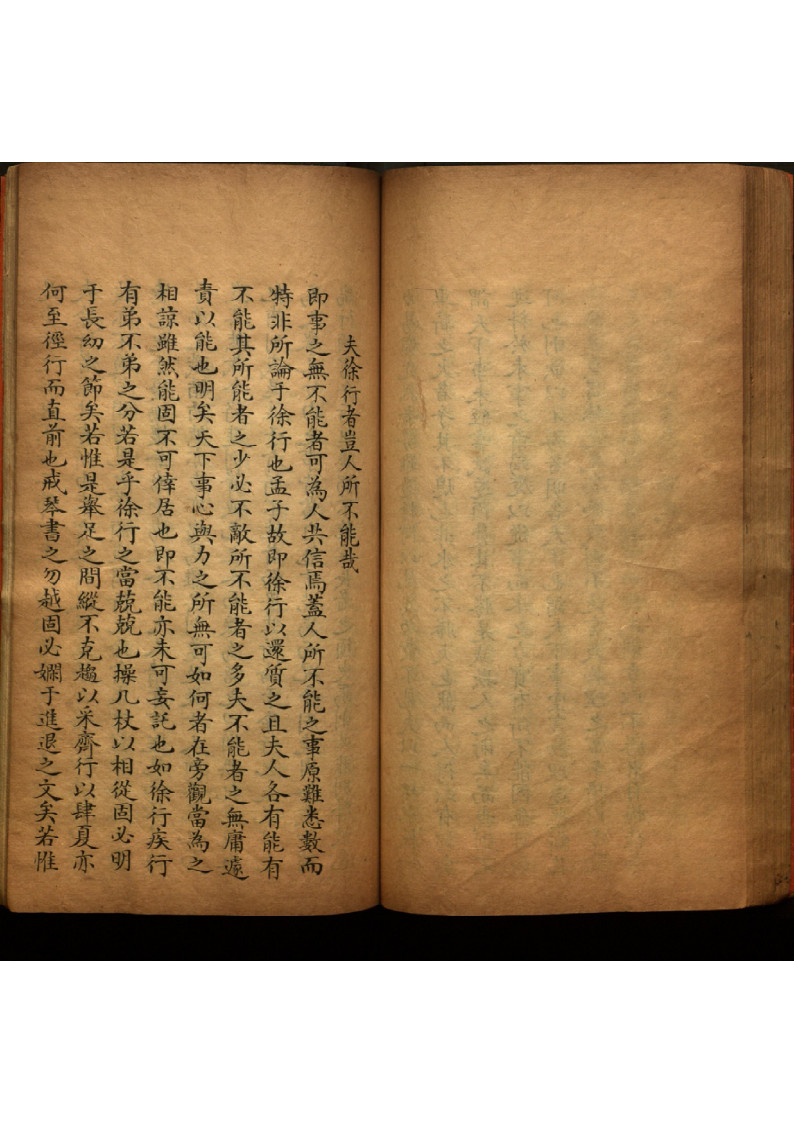 夫徐行者豈人所不能哉
即事之無不能者可為人共信焉蓋人所不能之事原難悉數而
特非所論于徐行也孟子故即徐行以還質之且夫人各有能有
不能其所能者之少必不敵所不能者之多夫不能者之無庸遽
責以能也明矣天下事心與力之所無可如何者在旁觀當為之
相諒雖然能固不可倖居也即不能亦未可妄託也如徐行疾行
有弟不弟之分若是乎徐行之當兢兢也操几杖以相從固必明
于長幼之節矣若惟是舉足之間縱不克趨以采齊行以肆夏亦
何至徑行而直前也戒琴書之勿越固必嫻于進退之文矣若惟